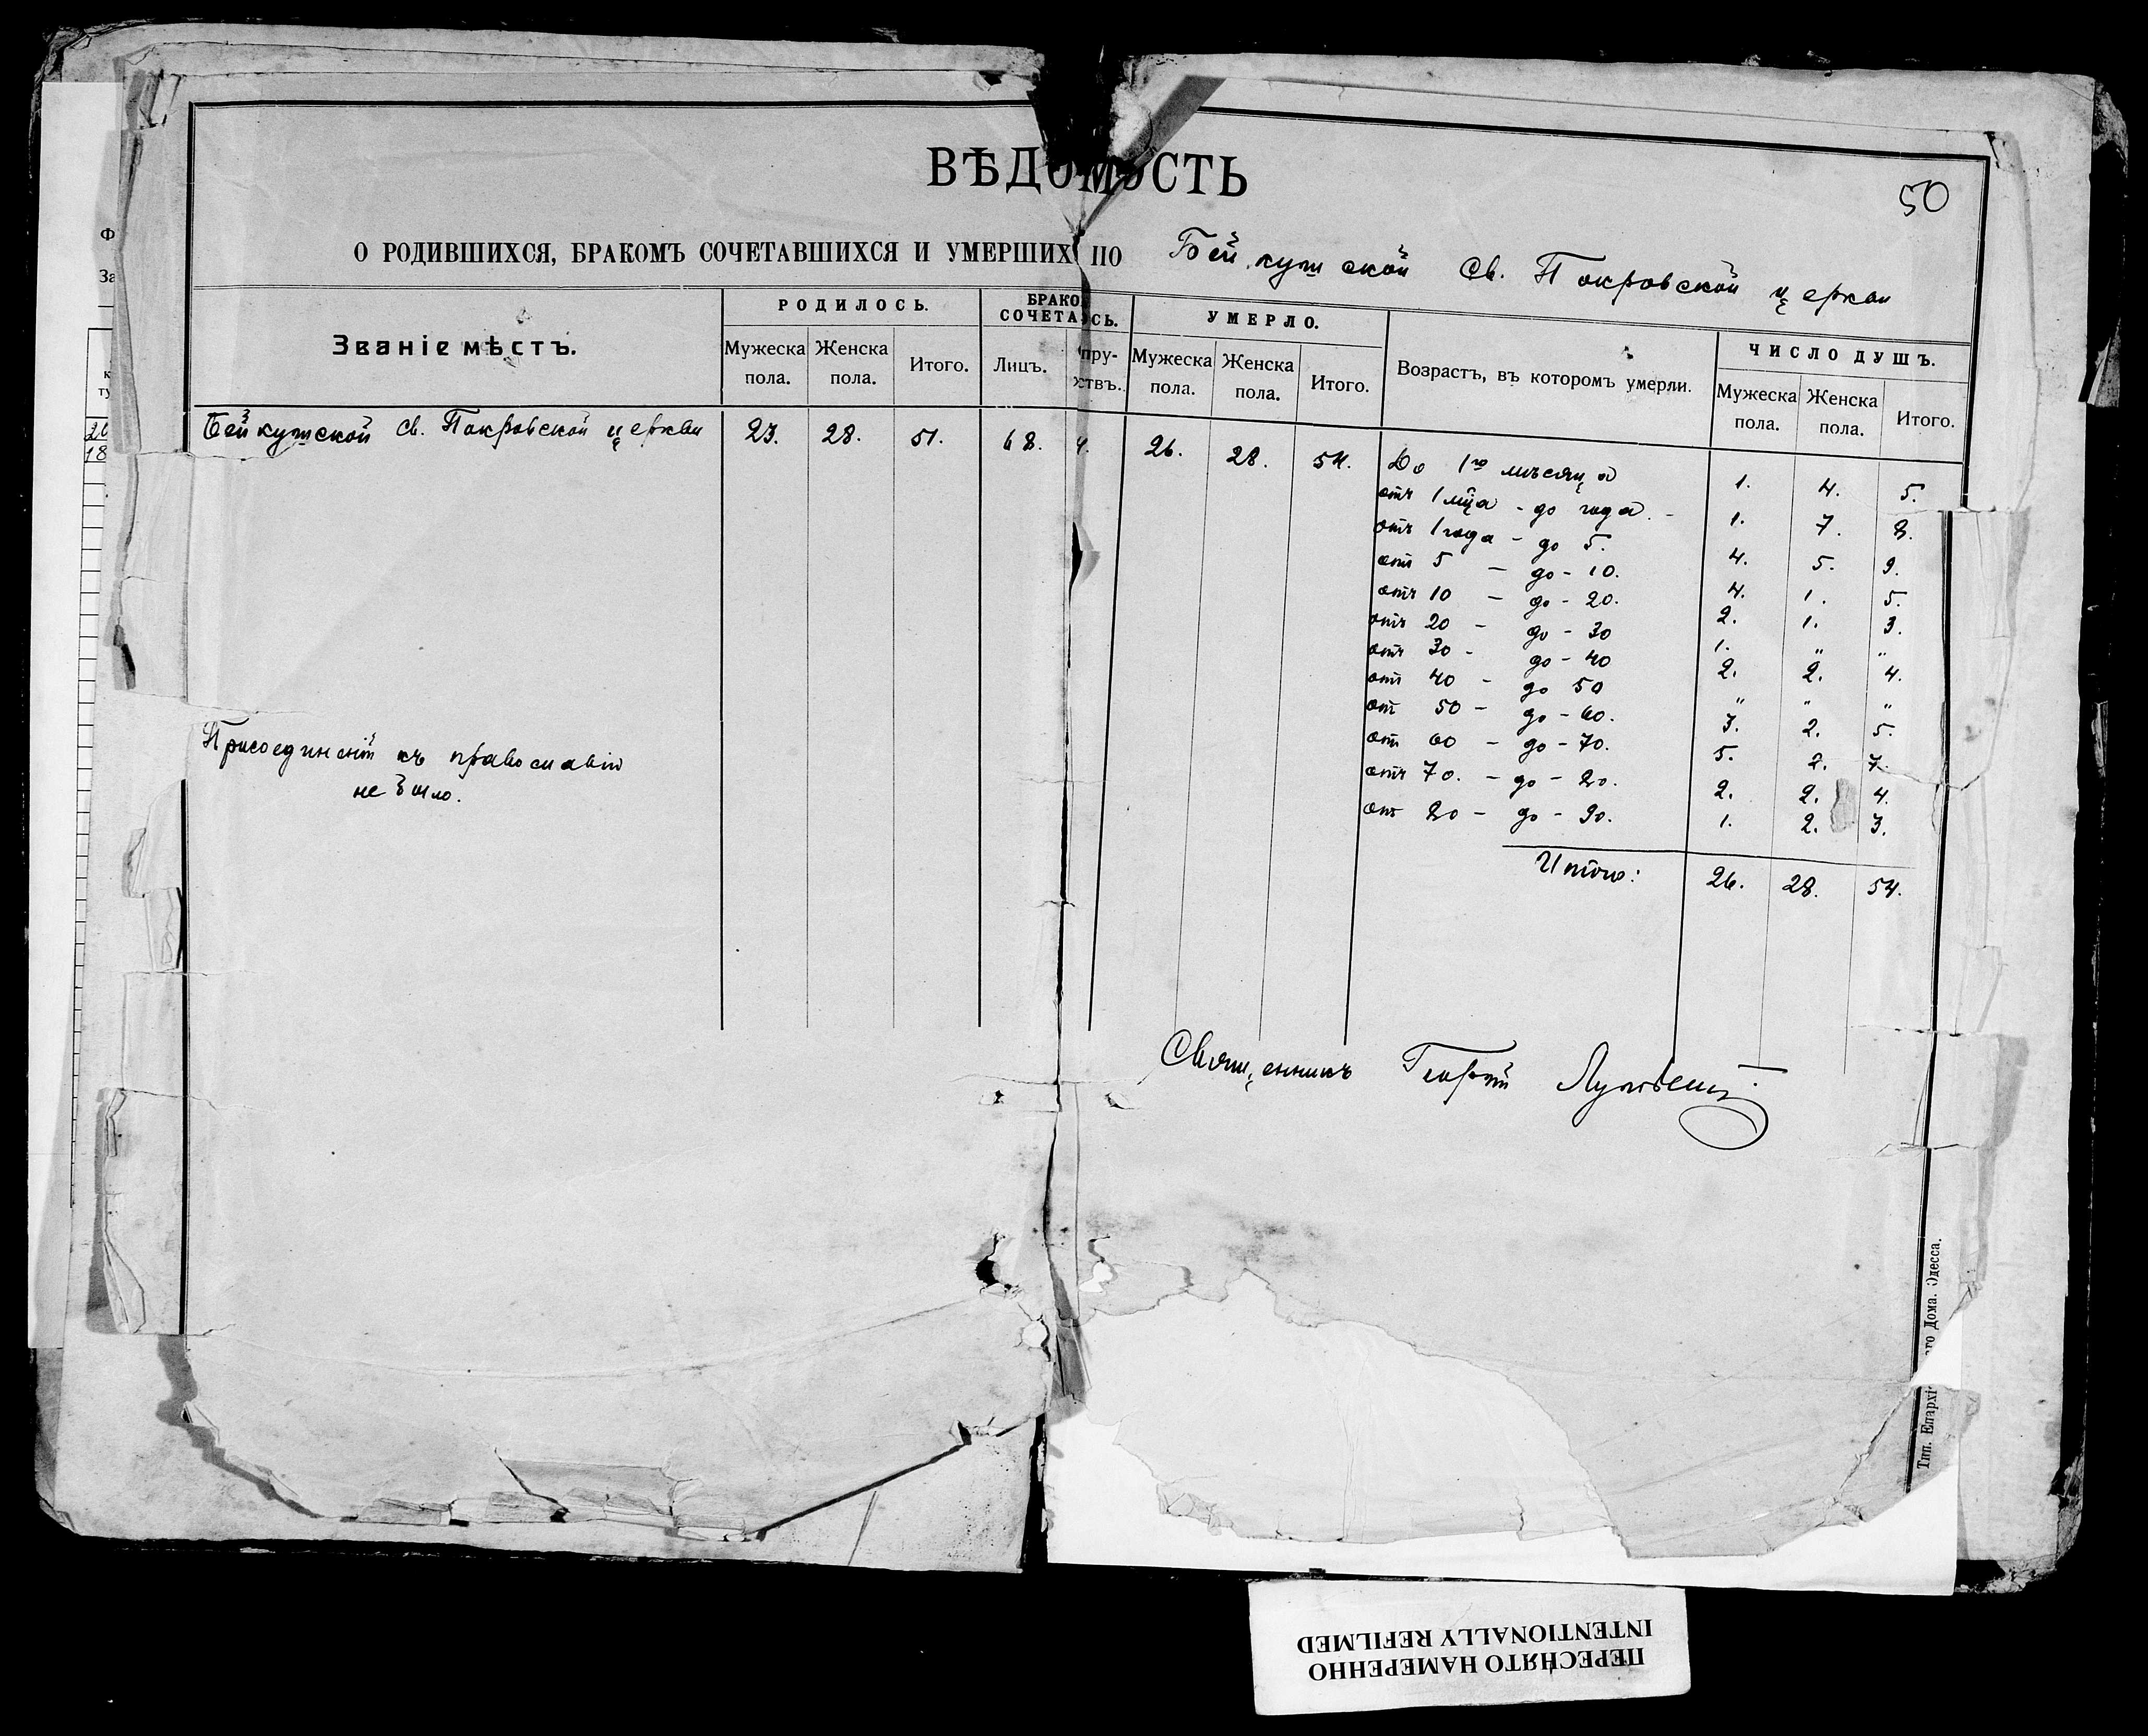 ВѢДОМОСТЬ
50
О РОДИВШИХСЯ, БРАКОМЪ СОЧЕТАВШИХСЯ И УМЕРШИХ ПО Бейкушской Св. Покровской церкви
Званіе мѣстъ.
РОДИЛОСЬ.
Мужеска пола.
Женска пола.
Итого.
БРАКО
СОЧЕТА СЬ.
Лицъ.
пру-
ствъ.
УМЕРЛО.
Мужеска пола.
Женска пола.
Итого.
Возрастъ, въ которомъ умерли.
ЧИСЛО ДУШЪ.
Мужеска пола.
Женска пола.
Итого.
Бейкушской Св. Покровской церкви 23. 28. 51. 68. 4. 26. 28. 54.
До 1го мѣсяца 1. 4. 5.
отъ 1 мца - до года - 1. 7. 8.
отъ 1 года - до 5. 4. 5. 9.
отъ 5 - до - 10. 4. 1. 5.
отъ 10 - до - 20. 2. 1. 3.
отъ 20 - до - 30 1. " "
отъ 30 - до - 40 2. 2. 4.
отъ 40 - до 50 " " "
от 50 - до - 60. 3. 2. 5.
от 60 - до - 70. 5. 2. 7.
отъ 70. - до - 80. 2. 2. 4.
от 80 - до - 90. 1. 2. 3.
Итого: 26. 28. 54.
Присоединеній къ православію
не было.
Священникъ Георгій
Тип. Епархі
аго Дома. Одесса.
ПЕРЕСНЯТО НАМЕРЕННО
INTENTIONALLY REFILMED